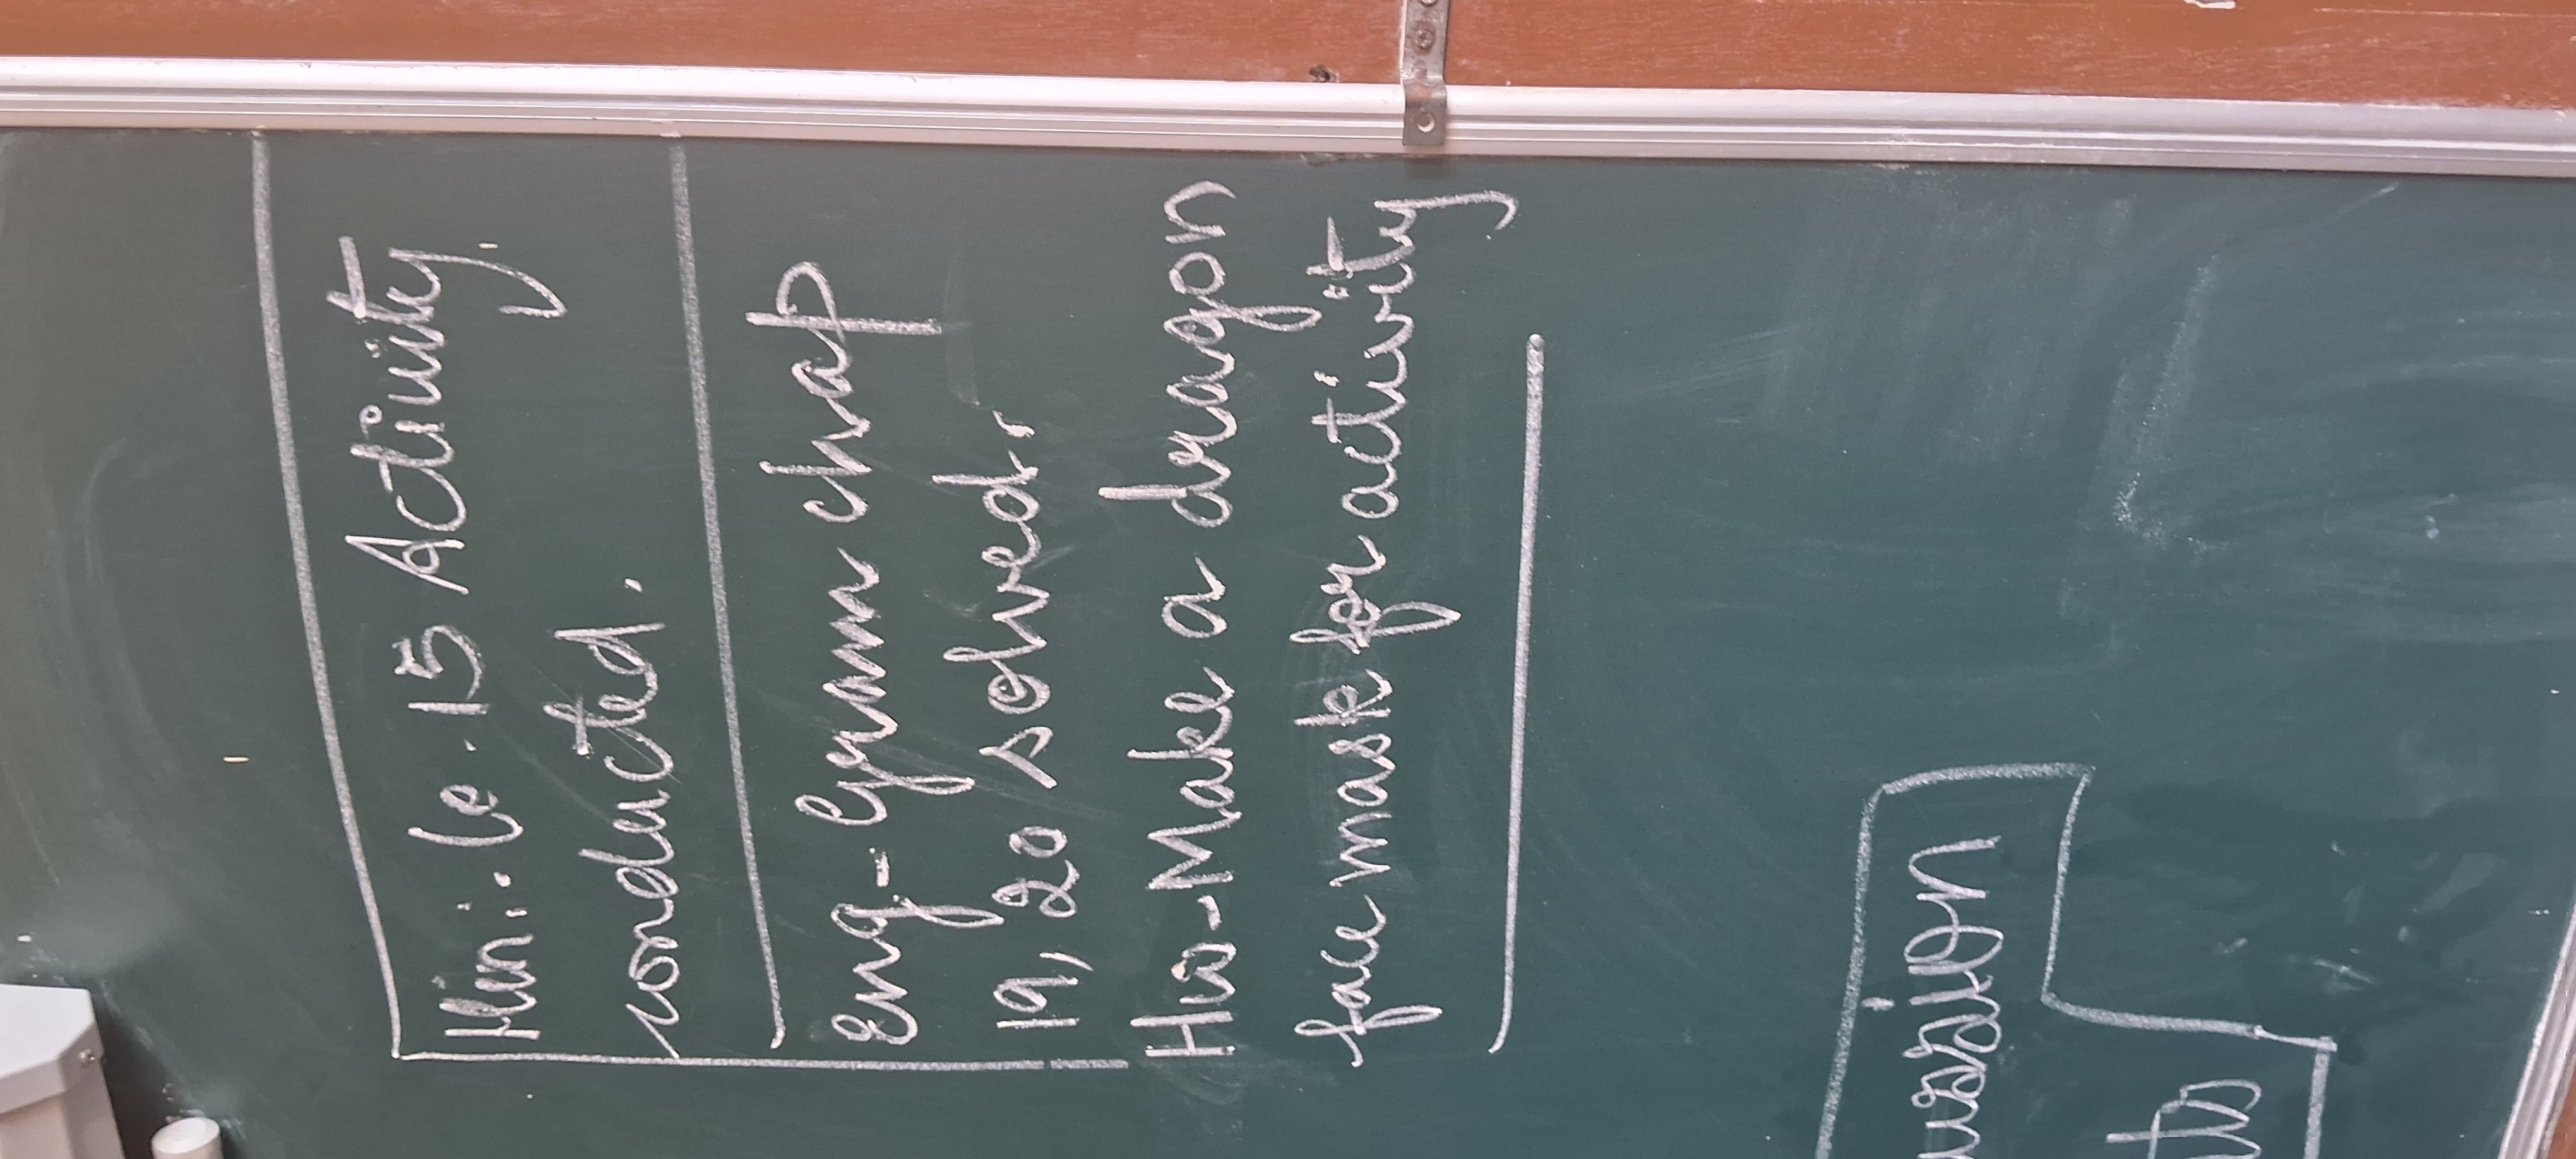 Hin:- Le-15 Activity.
conducted.
Eng- Gram chap
19, 20 solved.
Hw-Make a dragon
face mask for activity